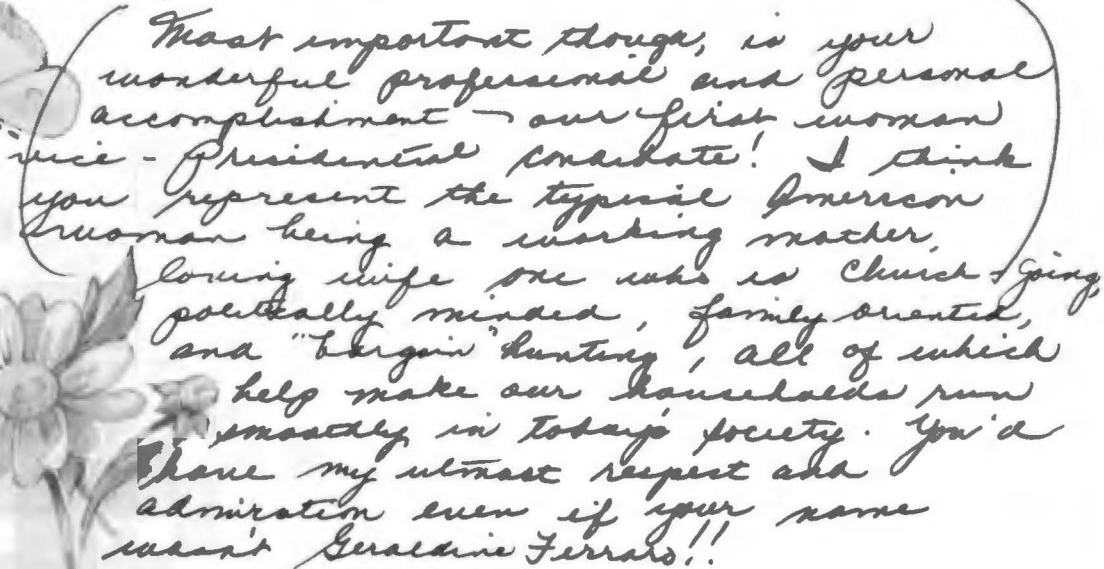 Most important though, is your
wonderful professional and personal
accomplishment - our first woman
vice-Presidential candidate! I think
you represent the typical American
woman being a working mother,
loving wife one who is Church-going,
politically minded, family oriented,
and "bargain" hunting, all of which
help make our households run
smoothly in today's society. You'd
have my utmost respect and
admiration even if your name
wasn't Geraldine Ferraro!!